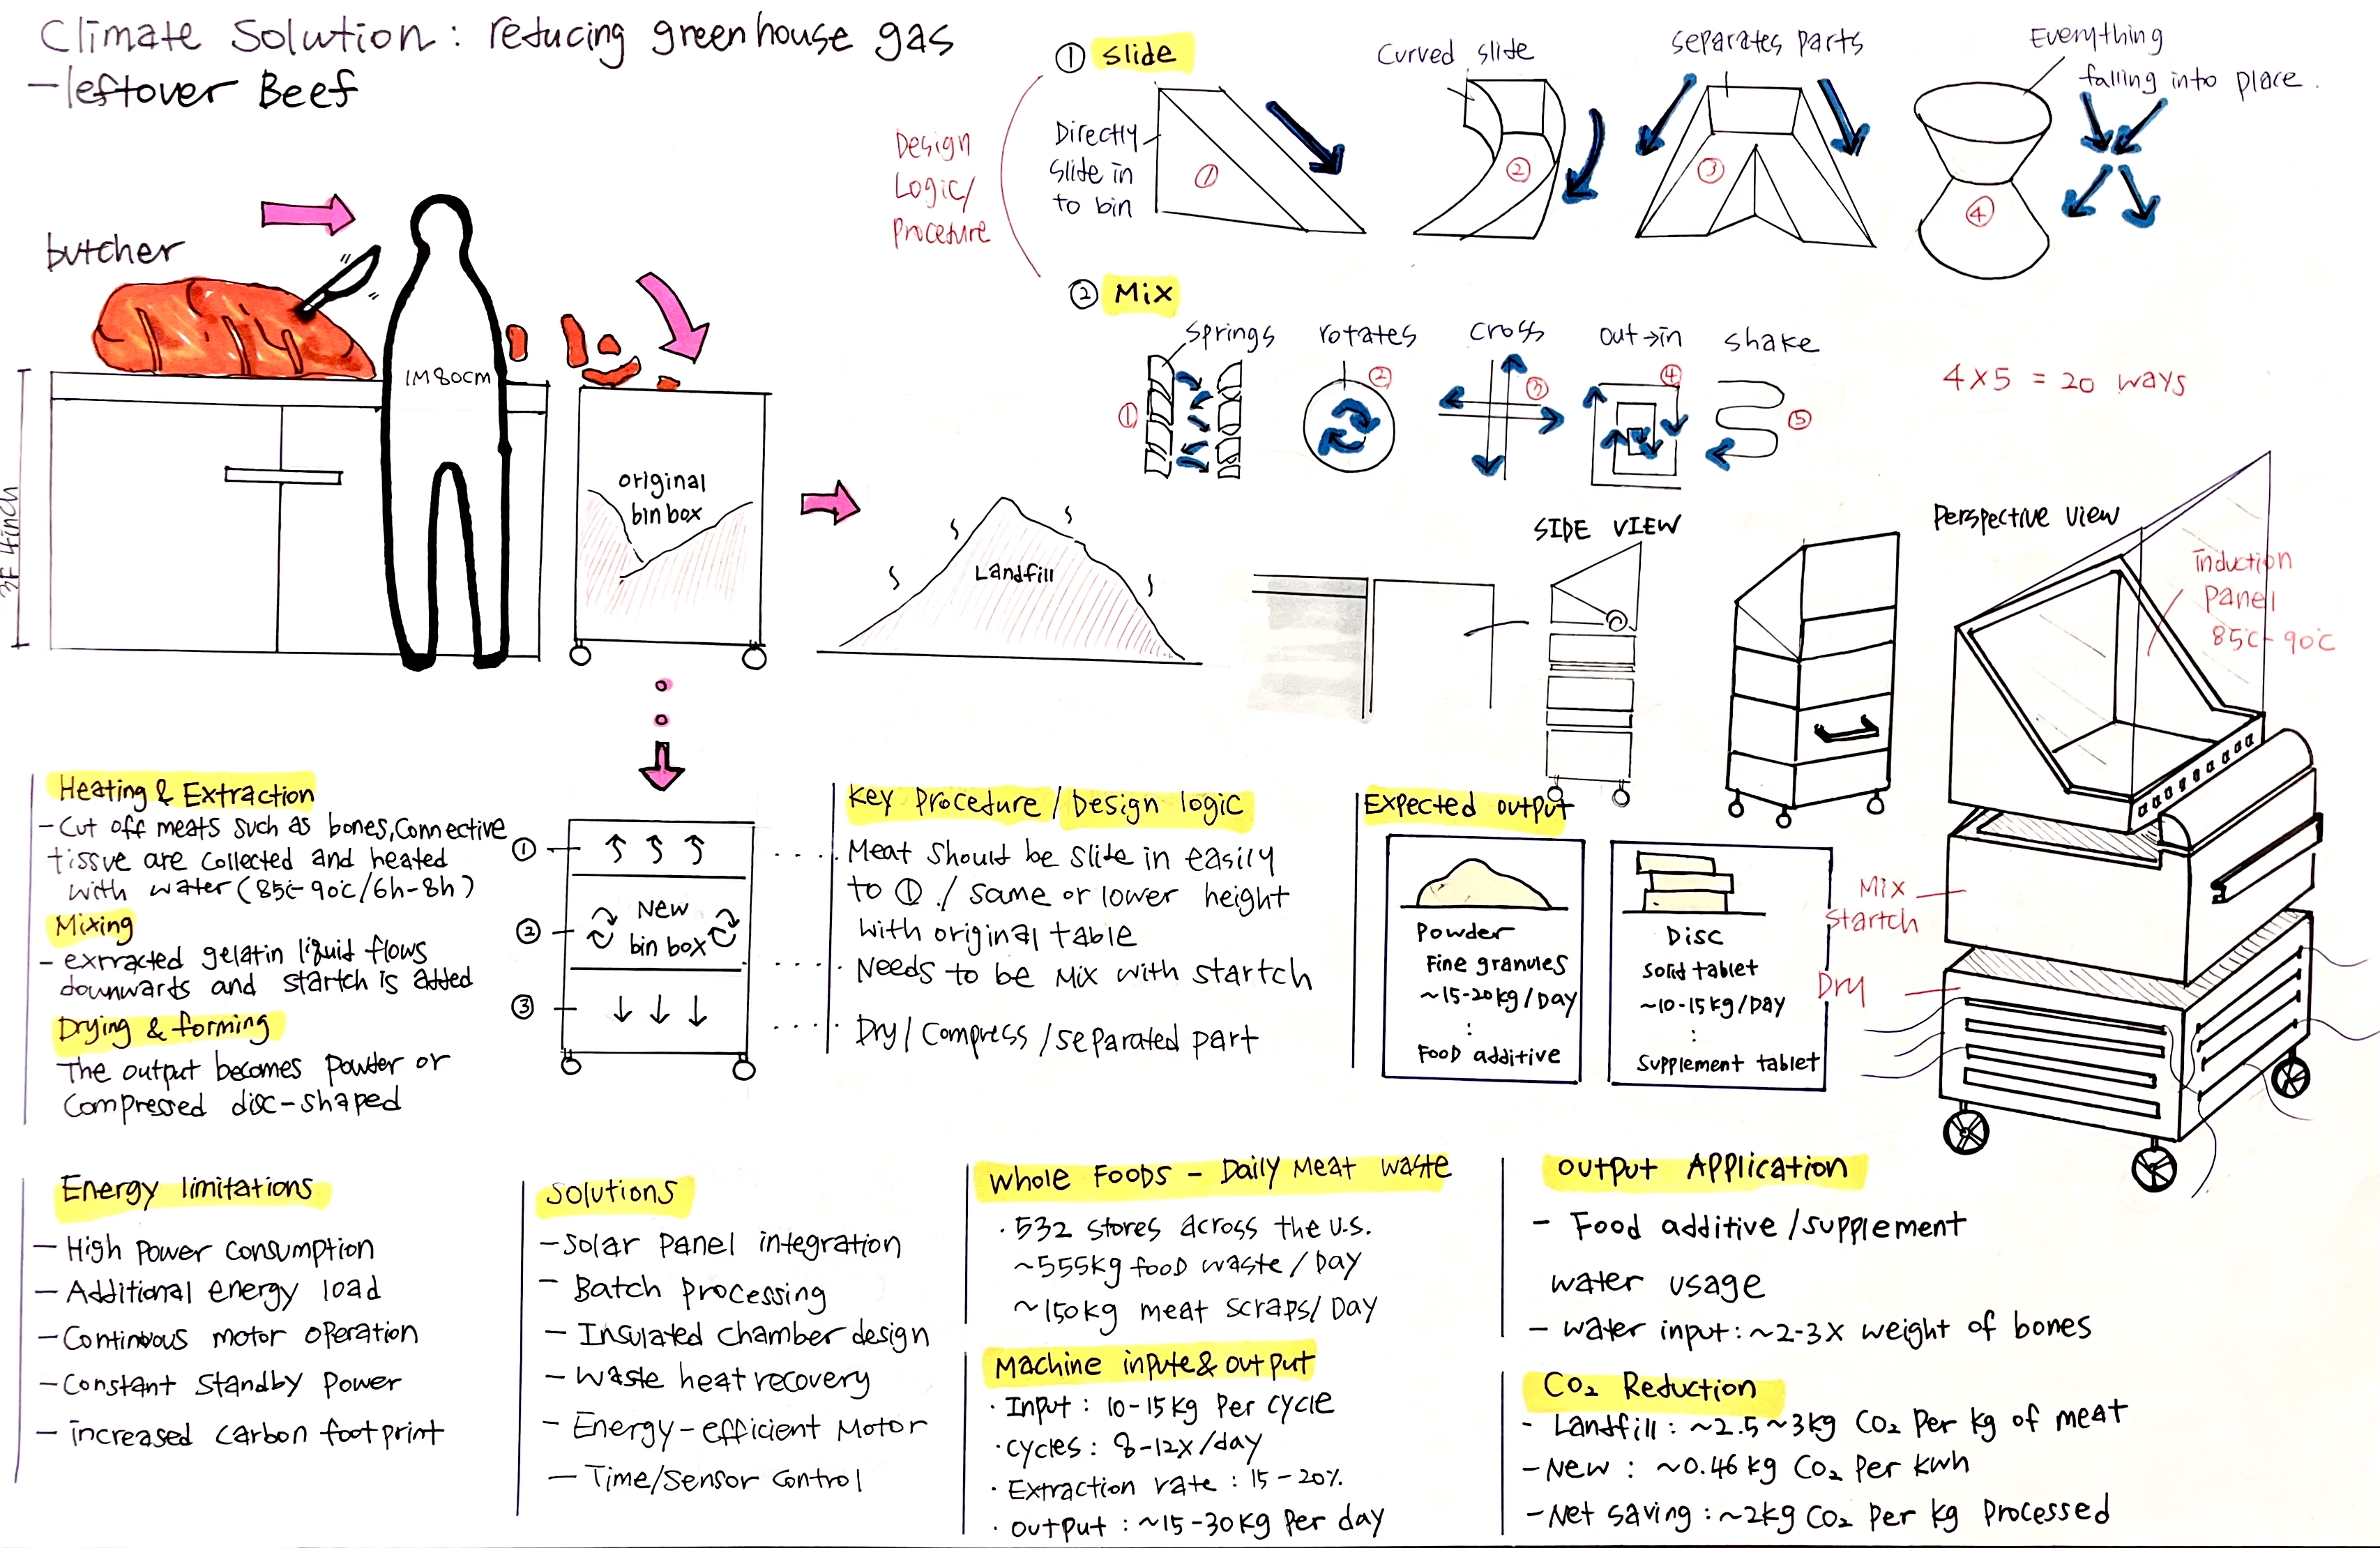 Climate Solution: reducing greenhouse gas
- leftover Beef
butcher
1M80CM
3F 4inch
original
bin box
Landfill
Design
Logic/
Proceture
① Slide
Directly
slide in
to bin
①
Curved slide
②
separates parts
③
Everything
falling into place.
④
② Mix
springs
①
rotates
②
cross
③
out→in
④
shake
⑤
4×5 = 20 ways
SIDE VIEW
Perspective View
induction
Panel
85c-90c
Mix
startch
Dry
Heating & Extraction
- Cut off meats such as bones, Connective
tissue are collected and heated
with water (85c-90c/6h-8h)
Mixing
- exrracted gelatin liquid flows
downwards and startch is added
Drying & forming
The output becomes Powder or
Compressed disc-shaped
①
②
③
New
bin box
Key Proceture / Design logic
Meat should be slide in easily
to ① / same or lower height
with original table
Needs to be Mix with startch
Dry / Compress / separated part
Expected output
Powder
Fine granules
~15-20kg/Day
:
Food additive
Disc
Solid tablet
~10-15kg/Day
:
Supplement tablet
Energy limitations
- High Power Consumption
- Additional energy load
- Continuous motor operation
- Constant Standby Power
- increased carbon footprint
Solutions
- Solar Panel integration
- Batch Processing
- Insulated chamber design
- Waste heat recovery
- Energy-efficient Motor
- Time/Sensor Control
Whole Foods - Daily Meat waste
· 532 stores across the U.S.
~555kg food waste / Day
~150kg meat scraps/ Day
Machine inpute & output
· Input : 10-15kg Per cycle
· Cycles : 8-12x/day
· Extraction rate : 15-20%
· output : ~15-30kg Per day
Output Application
- Food additive /supplement
water usage
- water input : ~2-3x weight of bones
CO₂ Reduction
- Landfill : ~2.5~3kg CO₂ Per kg of meat
- New : ~0.46kg CO₂ Per kwh
- Net saving : ~2kg CO₂ Per kg Processed